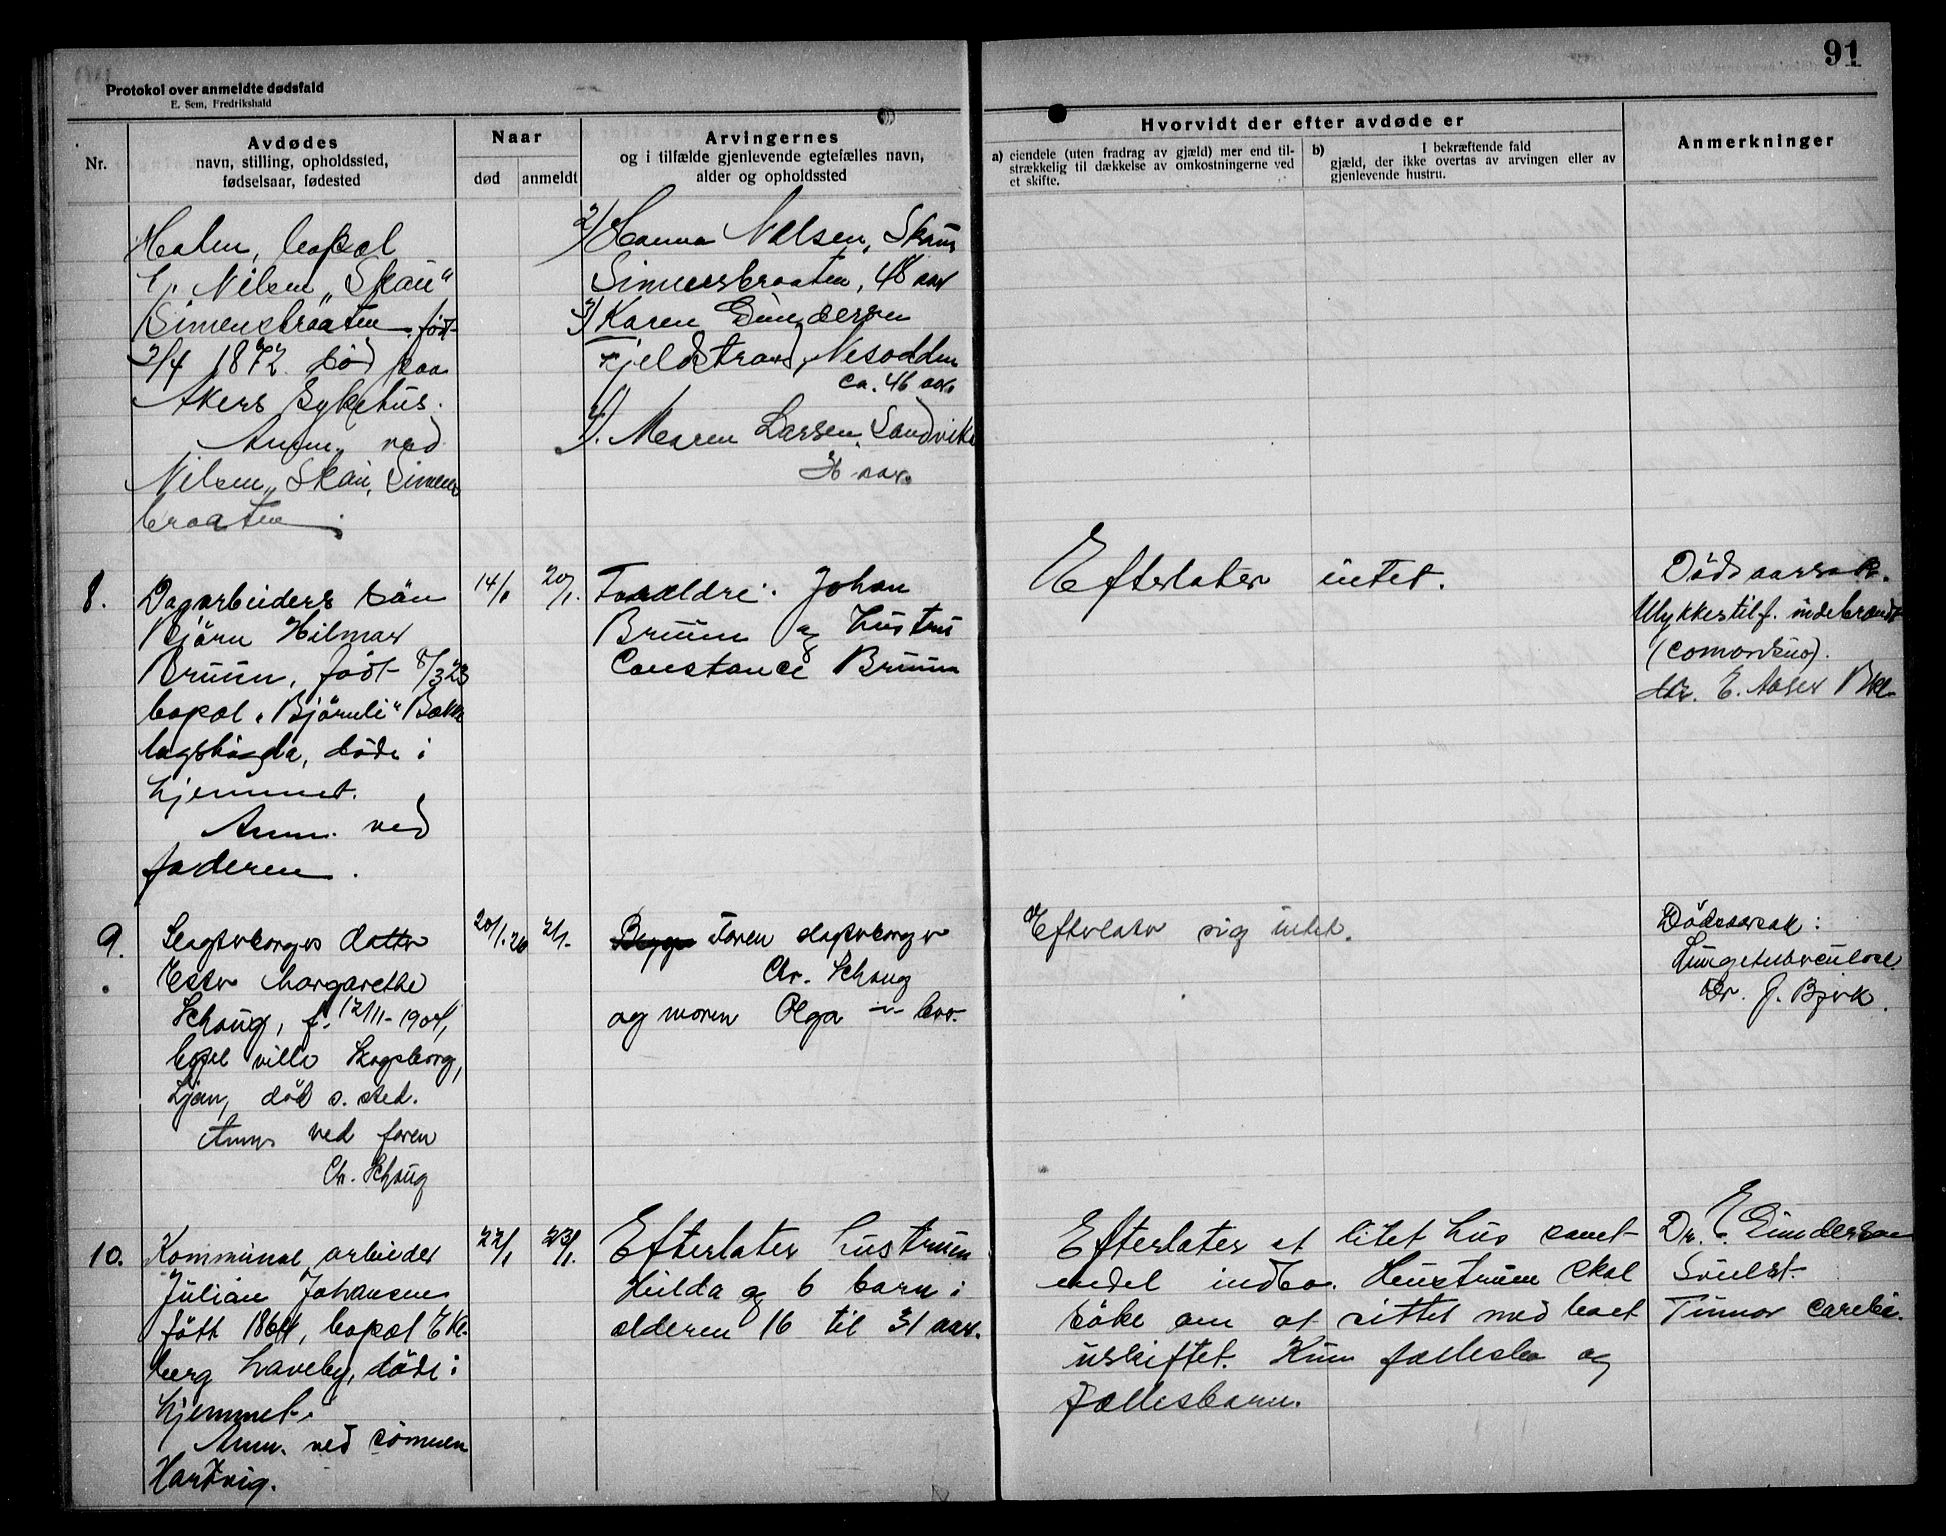 91
Protokol over anmeldte dødsfald
E. Sem, Fredrikshald
Nr.
Avdødes
navn, stilling, opholdssted,
fødselsaar, fødested
Naar
død
anmeldt
Arvingernes
og i tilfælde gjenlevende egtefælles navn,
alder og opholdssted
Hvorvidt der efter avdøde er
a) eiendele (uten fradrag av gjæld) mer end til-
strækkelig til dækkelse av omkostningerne ved
et skifte.
b) I bekræftende fald
gjæld, der ikke overtas av arvingen eller av
gjenlevende hustru.
Anmerkninger
Holm, bopæl
Nilsen "Skau"
Simensbraaten, født
2/4 1872. død paa
Akers Sykehus.
Anm. ved
Nilsen, Skau, Simens
braaten.
2/ Hanna Nilsen, Skau
Simensbraaten, 48 aar
3/ Karen Gundersen
Fjeldstrand, Nesodden
ca. 46 aar
4/. Maren Larsen, Sandvika
36 aar.
8.
Dagarbeiders søn
Björn Hilmar
Bruun, født 8/3 23
bopæl "Björnli" Bække
lagshögda, døde i
hjemmet.
Anm. ved
faderen.
14/1
20/1.
Forældre: Johan
Bruun og hustru
Constance Bruun
Efterlater intet.
Dødsaarsak.
Ulykkestilf. indebrændt
dr. E. Aaser Bkl
9.
Slagterborgers datter
Ester Margarethe
Schoug, f. 12/11-1904,
bopel villa Skogsborg,
Ljan, död s. sted.
Anm. ved faren
Chr. Schoug
20/1.26
21/1.
Begge Faren
Chr. Schoug
og moren Olga
Efterlater sig intet.
Dødsaarsak:
Lungetuberculose.
Dr. J. Bjerk.
10.
Kommunal arbeider
Julian Johansen
født 1864, bopæl Eke-
berg haveby, døde i
hjemmet.
Anm. ved sönnen
Hartvig.
22/1
23/1.
Efterlater hustruen
Hulda og 6 barn i
alderen 16 til 31 aar.
Efterlater et litet hus samt
endel indbo. Hustruen skal
søke om at sittet med boet
uskiftet. Kun fællesbo og
fællesbarn.
Dr. E. Gundersen
Svulst.
Tumor